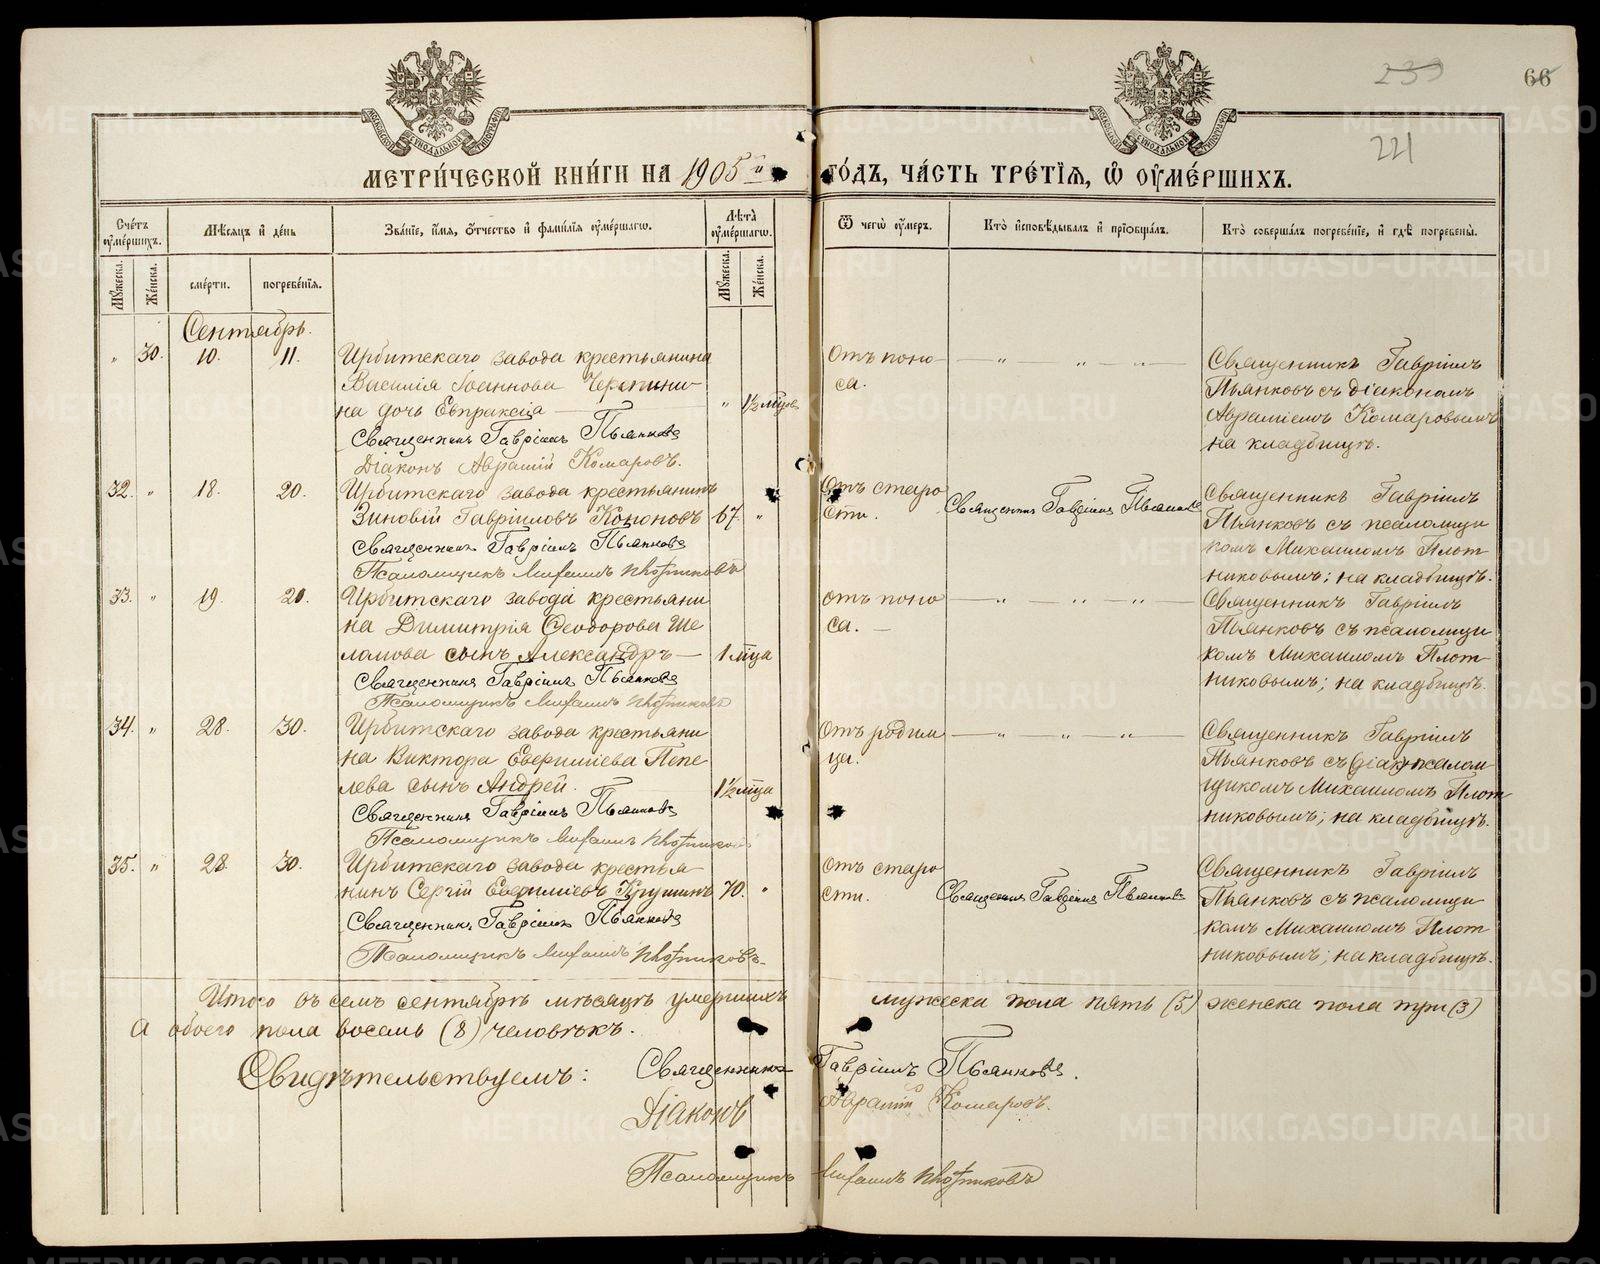 239
66
221
МЕТРИ́ЧЕСКОЙ КНИ́ГИ НА 1905й ГО́ДЪ, ЧА́СТЬ ТРЕ́ТІѦ, Ѡ ОУМЕ́РШИХЪ.
Сче́тъ оуме́ршихъ.
Мѣ́сяцъ и де́нь
Зва́ніе, и́мя, о́тчество и фами́лія оуме́ршагѡ.
Лѣ́та оуме́ршагѡ.
Ѿ чегѡ̀ оу́меръ.
Кто̀ исповѣ́дывалъ и пріѡбща́лъ.
Кто̀ соверша́лъ погребе́ніе, и гдѣ̀ погребе́ны.
Му́жеска.
Же́нска.
сме́рти.
погребе́нія.
Му́жеска.
Же́нска.
Сентябрь.
" 30. 10. 11. Ирбитскаго завода крестьянина
Василія Іоаннова
на дочь Евпраксія " 1½ мѣс.
Священникъ Гавріилъ Пьянковъ
Діаконъ Аврамій Комаровъ.
Отъ поно-
са.
Священникъ Гавріилъ
Пьянковъ съ діакономъ
Авраміемъ Комаровымъ
на кладбищѣ.
32. " 18. 20. Ирбитскаго завода крестьянинъ
Зиновій Гавріиловъ Кононовъ 67. "
Священникъ Гавріилъ Пьянковъ
Псаломщикъ Михаилъ Плотниковъ
Отъ старо
сти.
Священникъ Гавріилъ Пьянковъ
Священникъ Гавріилъ
Пьянковъ съ псаломщи
комъ Михаиломъ Плот
никовымъ; на кладбищѣ.
33. " 19. 20. Ирбитскаго завода крестьяни
на Димитрія Ѳеодорова Ше
ламова сынъ Александръ — 1 мѣсца
Священникъ Гавріилъ Пьянковъ
Псаломщикъ Михаилъ Плотниковъ
отъ поно
са. —
Священникъ Гавріилъ
Пьянковъ съ псаломщи
комъ Михаиломъ Плот
никовымъ; на кладбищѣ.
34. " 28. 30. Ирбитскаго завода крестьяни
на Виктора Евфиміева Пепе
лева сынъ Андрей. 1½ мѣсца
Священникъ Гавріилъ Пьянковъ
Псаломщикъ Михаилъ Плотниковъ
Отъ родим
ца.
Священникъ Гавріилъ
Пьянковъ съ (діак) псалом
щикомъ Михаиломъ Плот
никовымъ; на кладбищѣ.
35. " 28. 30. Ирбитскаго завода крестья-
нинъ Сергій Евфиміевъ 70. "
Священникъ Гавріилъ Пьянковъ
Псаломщикъ Михаилъ Плотниковъ.
Отъ старо
сти.
Священникъ Гавріилъ Пьянковъ
Священникъ Гавріилъ
Пьянковъ съ псаломщи
комъ Михаиломъ Плот
никовымъ; на кладбищѣ.
Итого въ семъ сентябрѣ мѣсяцѣ умершихъ мужеска пола пять (5) женска пола три (3)
А обоего пола восемь (8) человѣкъ.
Свидѣтельствуемъ: Священникъ Гавріилъ Пьянковъ.
Діаконъ Аврамій Комаровъ.
Псаломщикъ Михаилъ Плотниковъ
METRIKI.GASO-URAL.RU